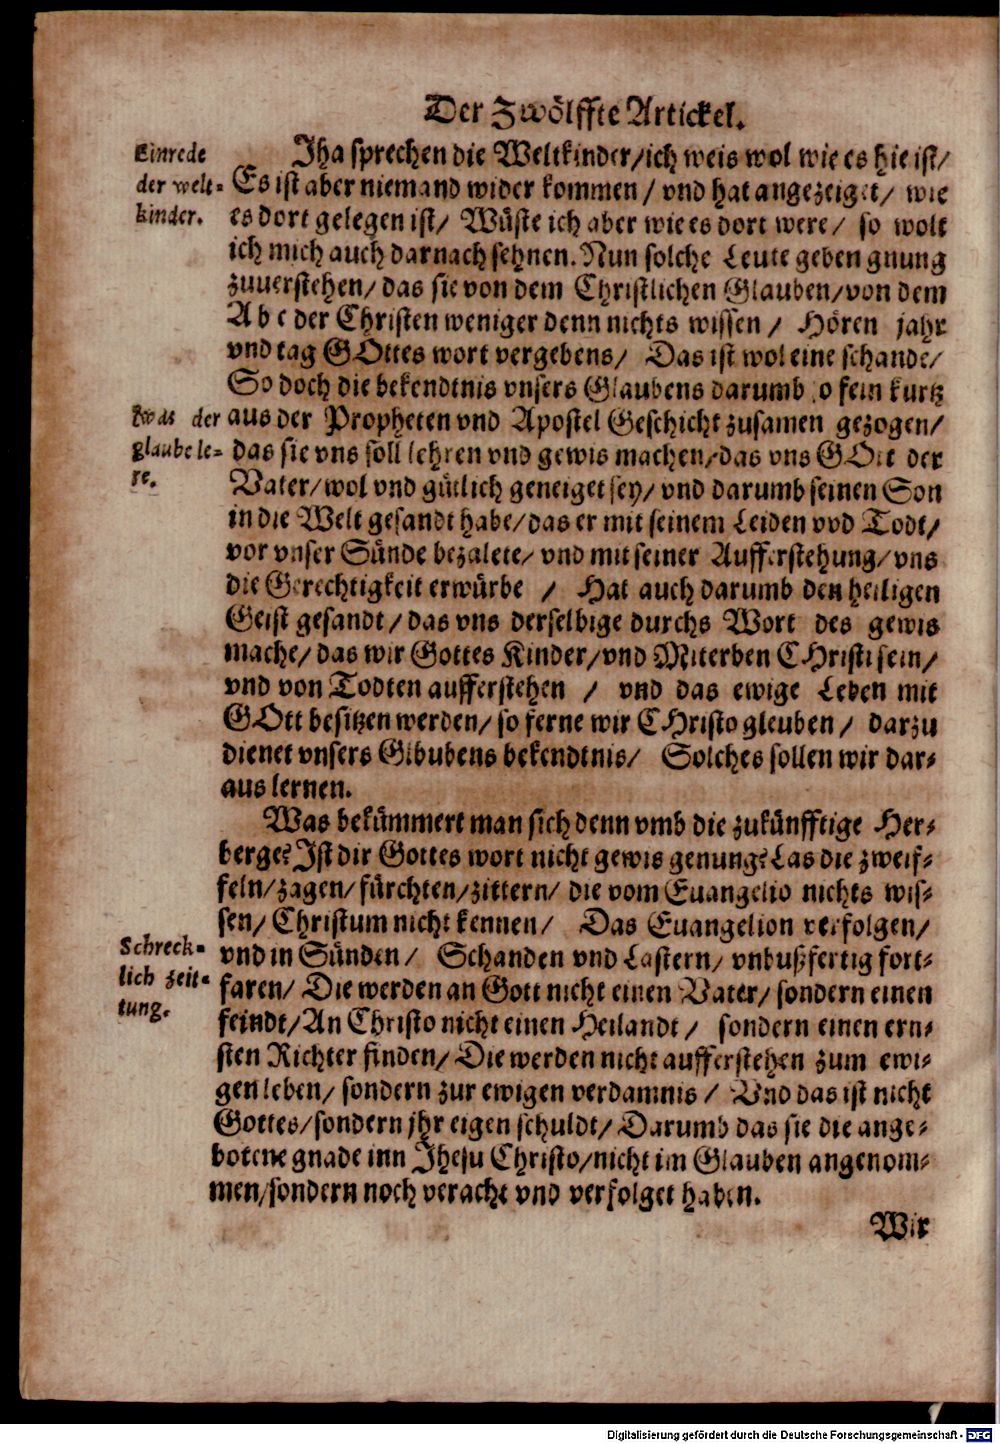 Der Zwölffte Artickel.
Einrede
der welt-
kinder.
Jha sprechen die Weltkinder/ich weis wol wie es hie ist/
Es ist aber niemand wider kommen/ vnd hat angezeiget/ wie
es dort gelegen ist/ Wüste ich aber wie es dort were/ so wolt
ich mich auch darnach sehnen. Nun solche Leute geben gnung
zuuerstehen/ das sie von dem Christlichen Glauben/von dem
A b c der Christen weniger denn nichts wissen/ Hören jahr
vnd tag GOttes wort vergebens/ Das ist wol eine schande/
So doch die bekendtnis vnsers Glaubens darumb so fein kurtz
Was der
glaube le-
re.
aus der Propheten vnd Apostel Geschicht zusamen gezogen/
das sie vns soll lehren vnd gewis machen/das vns GOtt der
Vater/wol vnd gütlich geneiget sey/ vnd darumb seinen Son
in die Welt gesandt habe/das er mit seinem Leiden vvd Todt/
vor vnser Sünde bezalete/ vnd mit seiner Aufferstehung/vns
die Gerechtigkeit erwürbe / Hat auch darumb den heiligen
Geist gesandt/das vns derselbige durchs Wort des gewis
mache/das wir Gottes Kinder/vnd Miterben CHristi sein/
vnd von Todten aufferstehen / vnd das ewige Leben mit
GOtt besitzen werden/ so ferne wir CHristo gleuben/ darzu
dienet vnsers Glbubens bekendtnis/ Solches sollen wir dar-
aus lernen.
Was bekümmert man sich denn vmb die zukünfftige Her-
berge? Ist dir Gottes wort nicht gewis genung? Las die zweif-
feln/zagen/fürchten/zittern/ die vom Euangelio nichts wis-
sen/ Christum nicht kennen/ Das Euangelion verfolgen/
Schreck-
lich zeit-
tung.
vnd in Sünden/ Schanden vnd Lastern/ vnbußfertig fort-
faren/ Die werden an Gott nicht einen Vater/ sondern einen
feindt/An Christo nicht einen Heilandt/ sondern einen ern-
sten Richter finden/ Die werden nicht aufferstehen zum ewi-
gen leben/ sondern zur ewigen verdamnis/ Vnd das ist nicht
Gottes/sondern jhr eigen schuldt/ Darumb das sie die ange-
botene gnade inn Jhesu Christo/nicht im Glauben angenom-
men/sondern noch veracht vnd verfolget haben.
Wir
Digitalisierung gefördert durch die Deutsche Forschungsgemeinschaft - DFG